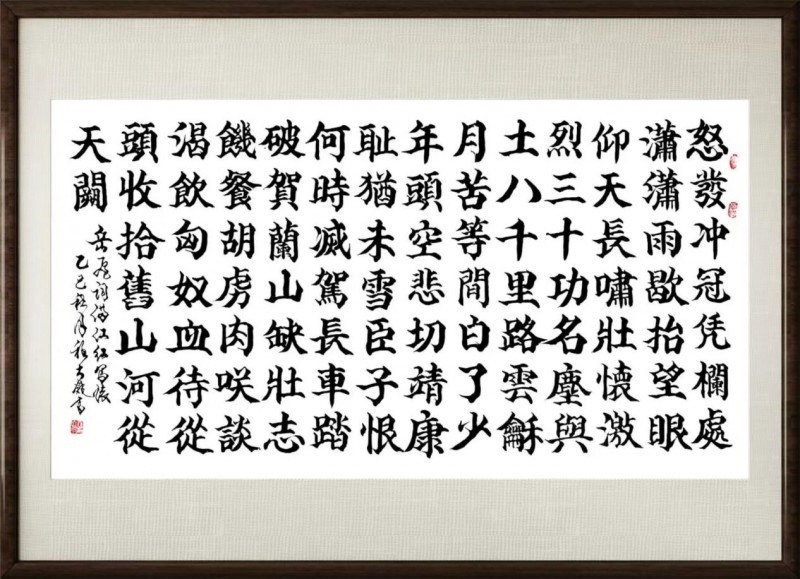 怒發冲冠凭欄處
瀟瀟雨歇抬望眼
仰天長嘯壯懷激
烈三十功名塵與
土八千里路雲龢
月苦等間白了少
年頭空悲切靖康
耻猶未雪臣子恨
何時滅駕長車踏
破賀蘭山缺壯志
饑餐胡虜肉咲談
渴飲匈奴血待從
頭收拾舊山河從
天闕
岳飛詞满江红寫懷
乙巳 月 書